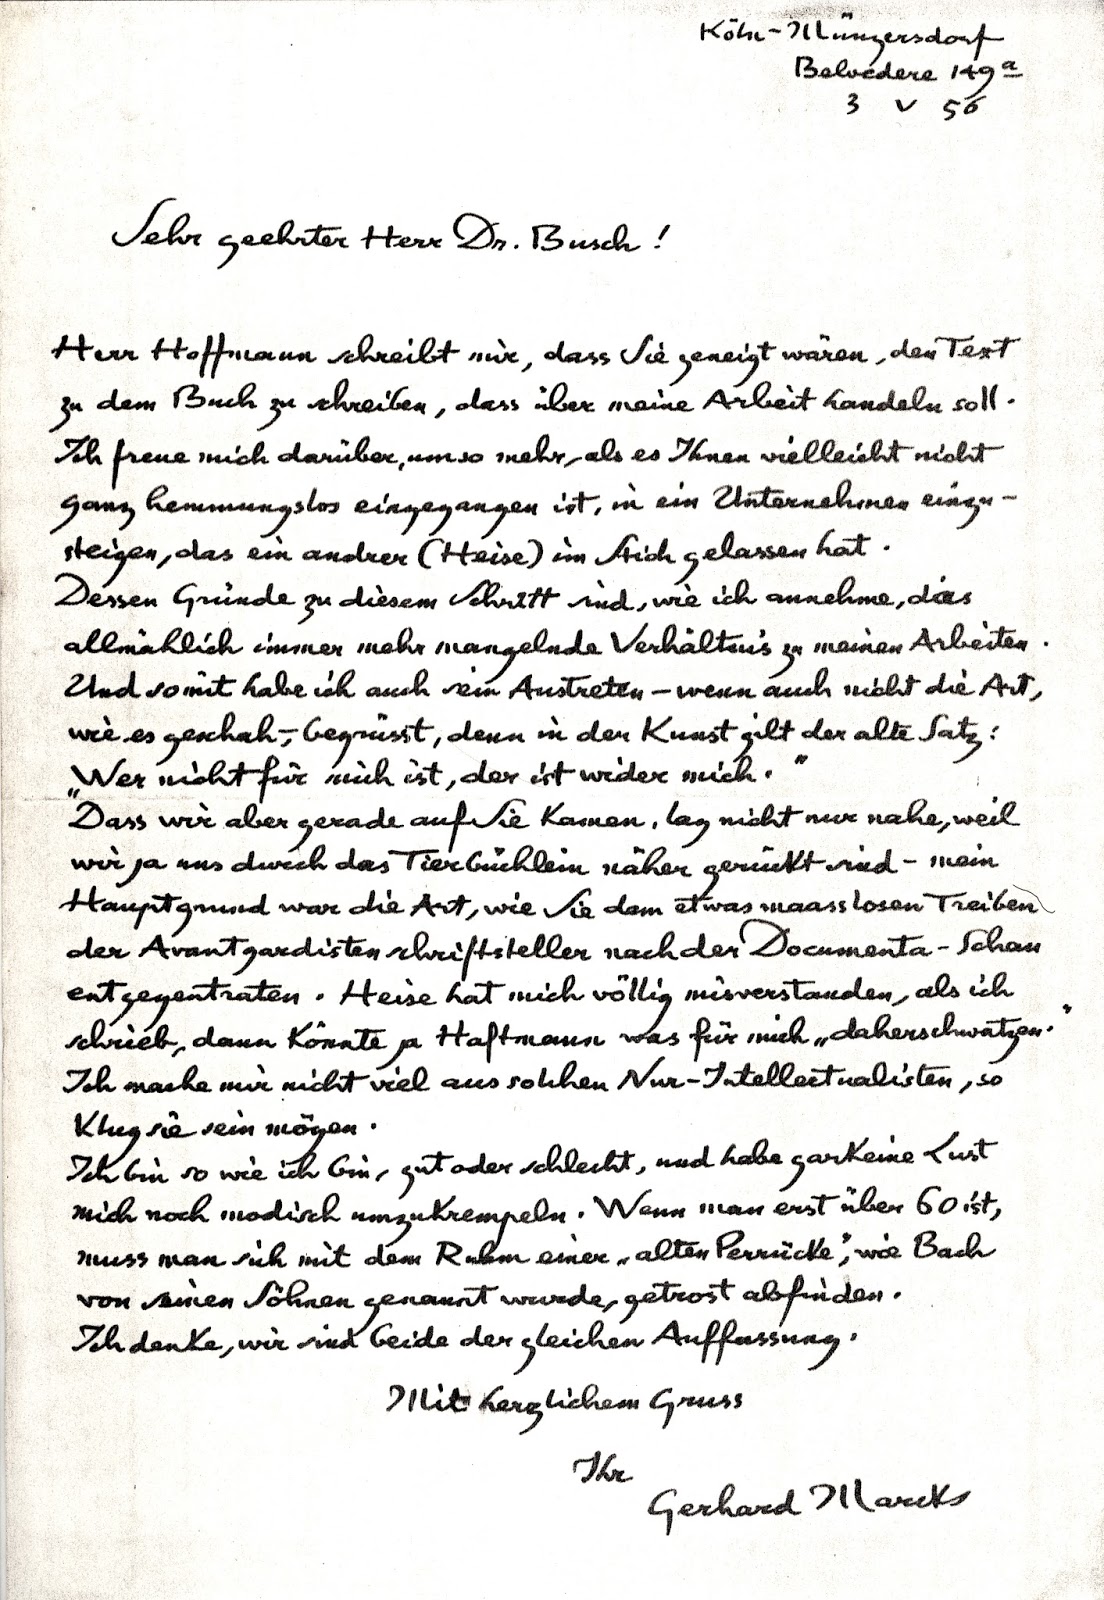 Köln-Müngersdorf
Belvedere 149a
3 V 56
Sehr geehrter Herr Dr. Busch!
Herr Hoffmann schreibt mir, dass Sie geneigt wären, den Text
zu dem Buch zu schreiben, dass über meine Arbeit handeln soll.
Ich freue mich darüber, umso mehr, als es Ihnen vielleicht nicht
ganz hemmungslos eingegangen ist, in ein Unternehmen einzu-
steigen, das ein andrer (Heise) im Stich gelassen hat.
Dessen Gründe zu diesem Schritt sind, wie ich annehme, das
allmählich immer mehr mangelnde Verhältnis zu meinen Arbeiten.
Und somit habe ich auch sein Austreten – wenn auch nicht die Art,
wie es geschah –, begrüsst, denn in der Kunst gilt der alte Satz:
„Wer nicht für mich ist, der ist wider mich."
Dass wir aber gerade auf Sie kamen, lag nicht nur nahe, weil
wir ja uns durch das Tierbüchlein näher gerückt sind – mein
Hauptgrund war die Art, wie Sie dem etwas maasslosen Treiben
der Avantgardistenschriftsteller nach der Documenta-Schau
entgegentraten. Heise hat mich völlig misverstanden, als ich
schrieb, dann könnte ja Haftmann was für mich „daherschwatzen."
Ich mache mir nicht viel aus solchen Nur-Intellectualisten, so
klug sie sein mögen.
Ich bin so wie ich bin, gut oder schlecht, und habe garkeine Lust
mich noch modisch umzukrempeln. Wenn man erst über 60 ist,
muss man sich mit dem Ruhm einer „alten Perrücke", wie Bach
von seinen Söhnen genannt wurde, getrost abfinden.
Ich denke, wir sind beide der gleichen Auffassung.
Mit herzlichem Gruss
Ihr
Gerhard Marcks